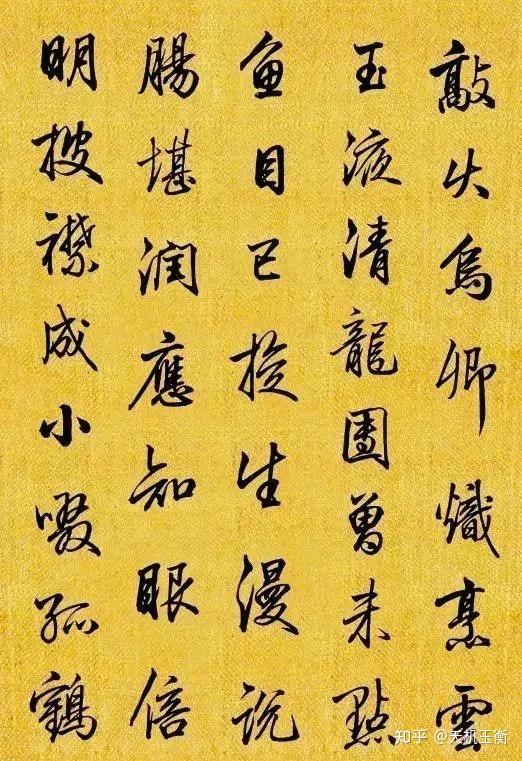 敲火烏卿熾烹雲
玉液清龍團曾未點
魚目已旋生漫說
腸堪潤應知眼倍
明披襟成小啜孤鶴
知乎 @天机玉衡